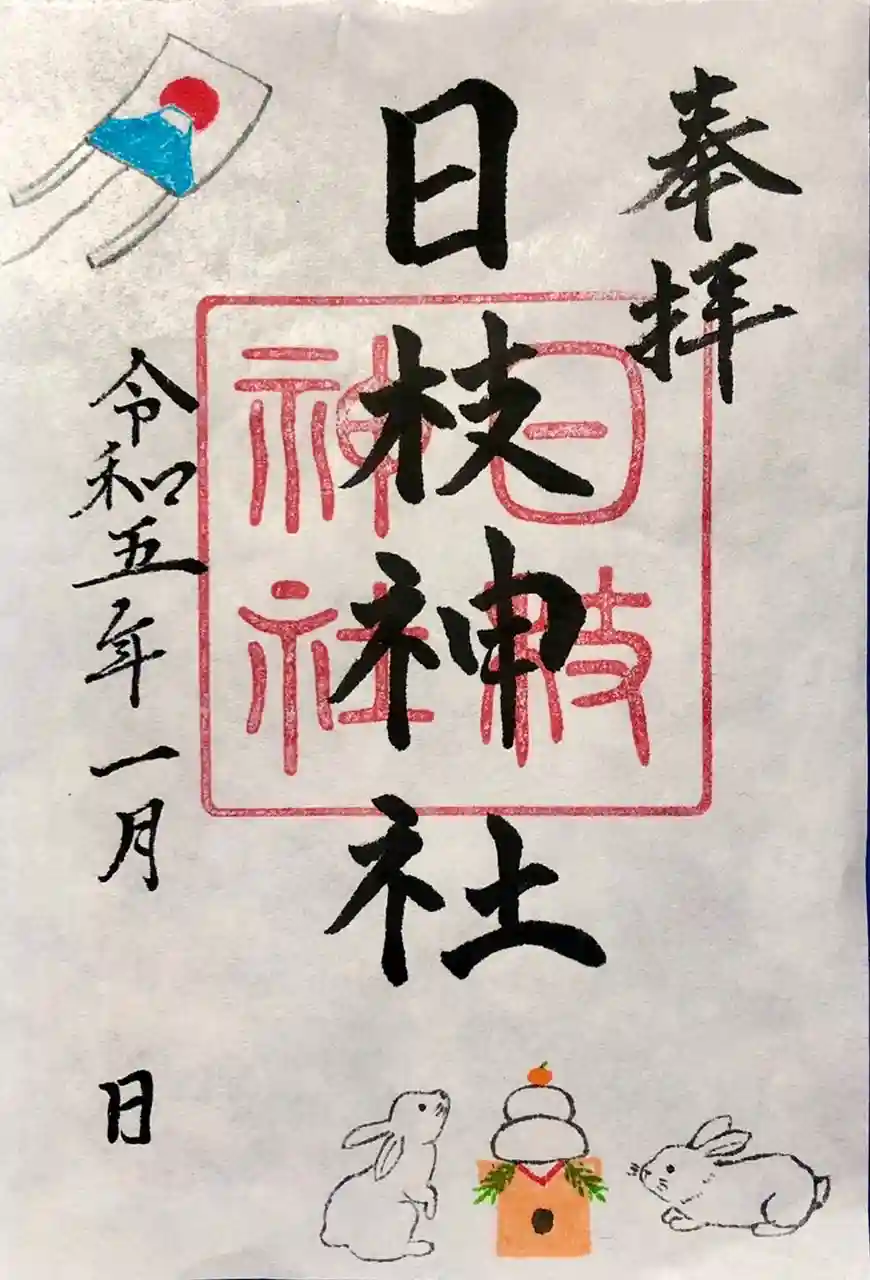 奉拝
日枝神社
日枝
神社
令和五年一月 日